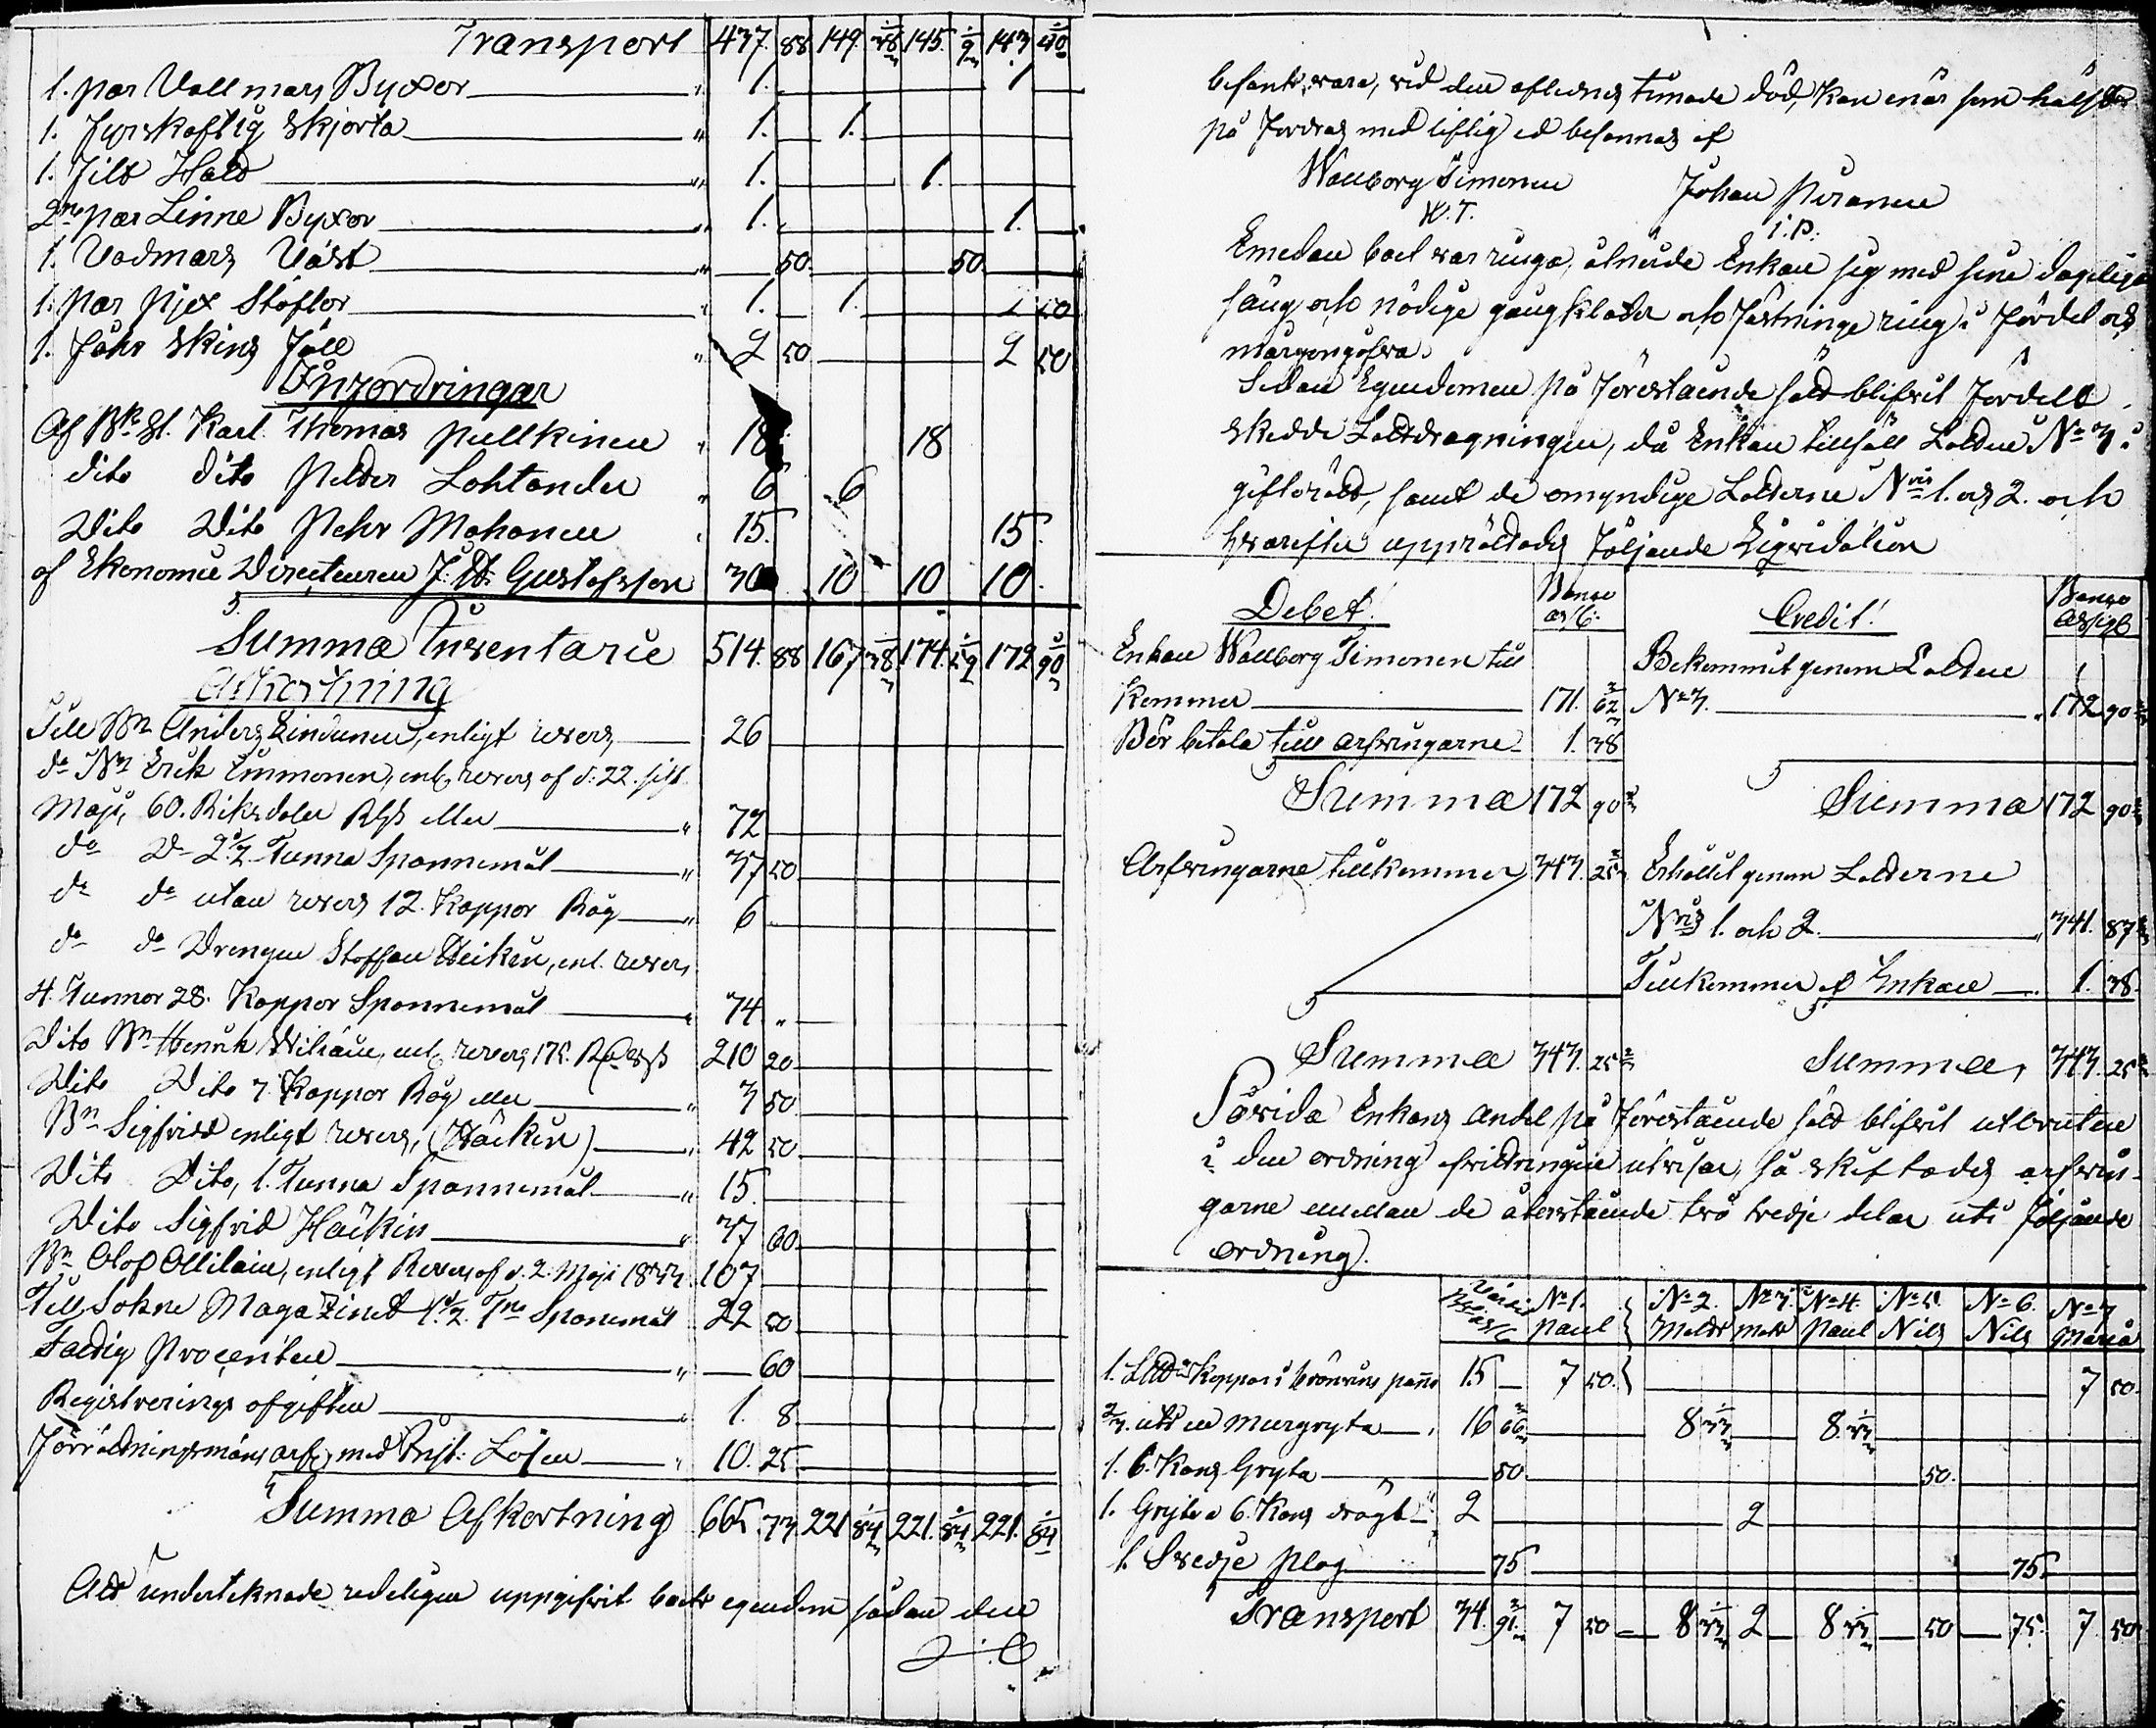 Transport 437. 88 149. 28 1/3 145. 9 1/3 143. 40 1/3
1. par Vallmars Byxor 1. 1
1. Fyrskaftig Skjorta " 1. 1.
1. Filt Hald " 1. 1.
2ne par Linne Byxor " 1. 1.
1. Vadmars Väst " 50. 50.
1. par pjex Stöflor 1. 1.
1. Fåhr Skins Fäll " 2 50 2 50
Infordringar
Af Karl Thomas Pullkinen " 18 18
dito dito Petter Lohtander " 6 6
Dito Dito Pehr Mohonen 15. 15.
af Ekonomie Directeuren J: Gustafsson 30 10 10 10.
Summa Inventarie 514. 88 167 28 1/3 174. 59 1/3 172 90
Afkortning
Till Bn Anders Lindunen, enligt revers 26
do Bn Erik Immonen, enl. revers af d: 22. sist
Maji, 60. Riksdaler Rgs eller " 72
do Do 2 1/2 Tunna Spannemål " 37 50
do do utan revers 12. Kappor Råg " 6
do do Drengen Staffan Heikin, enl. revers
4. Tunnor 28. Kappor Spannemål " 74 "
Dito Bn Henrik Wiliain, enl. revers 175. 210 20
Dito Dito 7. Kappor Råg eller " 3 50
Bn Sigfrid enligt revers, (Häikin) " 42 50
Dito Dito, 1. Tunna Spannemål " 15.
Dito Sigfrid Häikin " 37 60
Bn Olof Ollilain, enligt Revers af d. 2. Maji 1833. 107
Till Sokne Magazinet 1 1/2 Tna Spanemål 22 50
Fattig Procenten " 60
Registrerings afgiften 1. 8
Förrättningsmäns arf. med Lösen 10. 25
Summa Afkortning 665. 73. 221 84 1/3 221. 84 1/3 221. 84
Att undertecknade redeligen uppgifvit boets egendom sådan den
befants vara, vid den aflednes timade död, kan när som hälst
på fordras med liflig ed besannas af
Wallborg Timonen Johan Piranen
W. T. I. P.
Emedan boet var ringa, åtnöde Enkan sig med sine dagliga
säng och nödige gångkläder och Fästninge ring i Fördel och
morgongåfva.
Sedan Egendomen på förestående sätt blifvit fördelt
skedde Lottdragningen, då Enkan tillföll Lotten No 3 i
giftorätt, samt de omyndige Lotterne Nris 1. och 2. och
hvarefter upprättades följande Liqvidation
Debet! Banco Credit! Banco
Enkan Wallborg Timonen till Bekommit genom Lotten
kommer 171. 62 2/3 No 3. 172 90
Bör betala till arfvingarne 1. 28
Summa 172 90 Summa 172 90
Arfvingarne tillkommer 343. 25 2/3 Erhållit genom Lotterne
Nris 1. och 2 341. 87
Tillkommer af Enkan 1. 38.
Summa 343. 25 2/3 Summa, 343. 25
Sedan Enkans andel på förestående sätt blifvit utbruten
i den ordning utvisar, så skiftades arfvin-
garne emellan de återstående två tredje delar uti följande
ordning.
No 1. Paul No 2. Matts No 3. Matts No 4. Paul No 5. Nils No 6. Nils No 7 Maria
1. Kappas brännvins panna 15 7 50. 7 50.
2/3. uti en Murgryta 16 66 2/3 8 33 1/3 8. 33 1/3
1. 6. Kans Gryta 50 50.
1. Gryta a 6. Kans drägt 2 2
1. Svedje Plog 75 75.
Transport 34. 91 2/3 7 50 8 33 1/3 2 8 33 1/3 50 75. 7 50